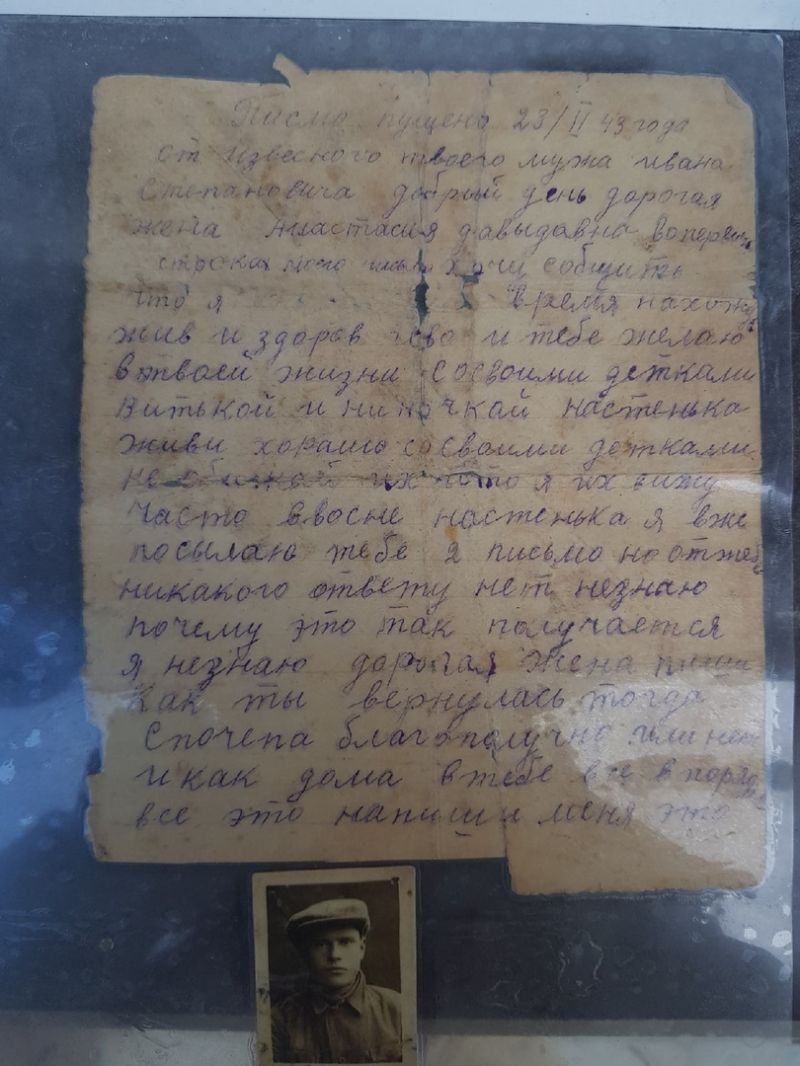 Писмо пущено 23/II 43 года
от извесного твоего мужа ивана
Степановича добрый день дорогая
жена Анастасия давыдавна воперви
строках моего хочу собщить
что я время нахожу
жив и здоров чево и тебе желаю
втвоей жизни сосвоими детками
витькой и ниночкай настенька
живи хорашо сосвоими детками
не обижай их я их вижу
часто ввосне настенька я вже
посылаю тебе 2 письмо но оттеб
никакого ответу нет незнаю
почему это так получается
я незнаю дорогая жена пиши
как ты вернулась тогда
спочепа благополучно или нет
и как дома втебе все впоряд
все это напиши меня это